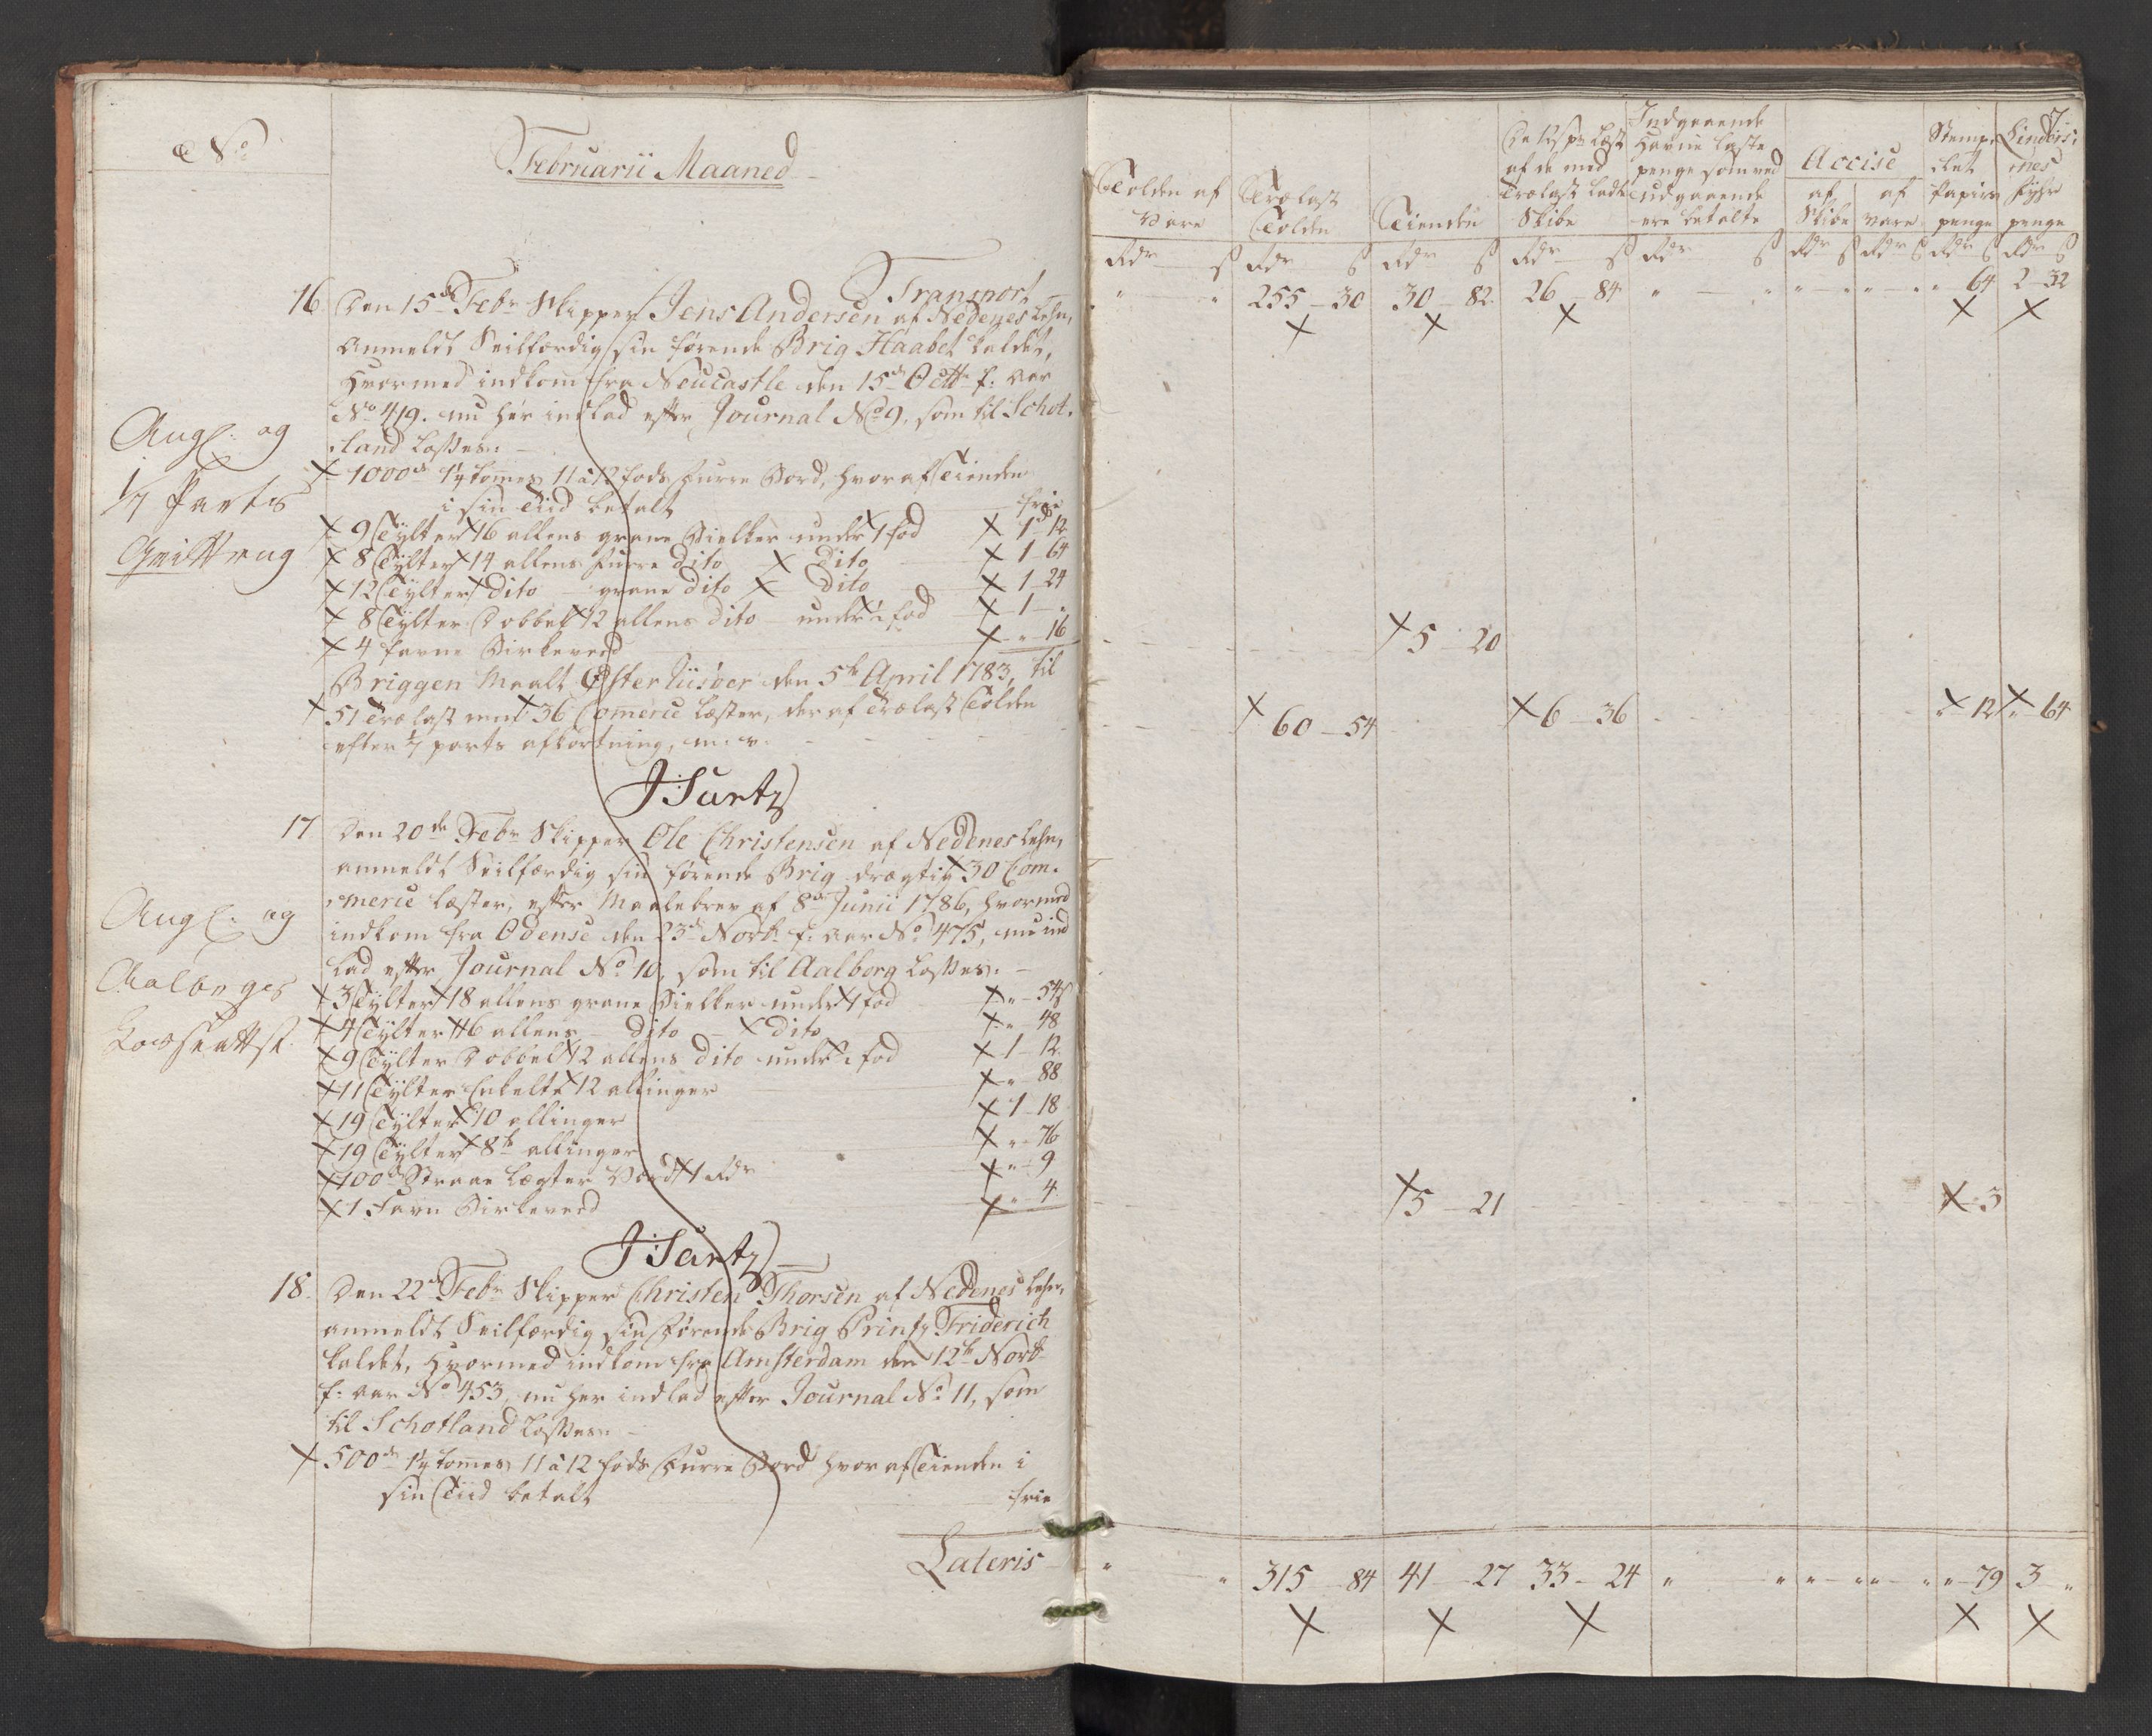 No
Februarii Maaned
Transport
16 Den 15de Febr Skipper Jens Andersen af Nedenes Lehn,
Anmeldt Seilfærdig sin førende Brig Haabet kaldet,
Hvormed indkom fra Neucastle den 15de Octbr f: aar
No 419. nu her indlad efter Journal No 9, som til Schot-
land losses:
Angl: og
1/7 Parts
Quittrng
1000de 1 1/4 tommes 11 à 12 fods furre Bord, hvoraf Tienden
i sin Tiid betalt frie
9 Tylter 16 allens grane Bielker under 1 fod 1-12
8 Tylter 14 allens furre dito dito 1-64
12 Tylter dito grane dito dito 1-24
8 Tylter Dobbel 12 allens dito under 1 fod 1-"
4 favne Birkeved "-16
Briggen Maalt Øster Riisøer den 5te April 1783, til
51 Trælast med 36 Comerce Læster, der af Trælast Tolden
efter 1/7 parts afkortning, m. v.
17 Den 20de Febr Skipper Ole Christensen af Nedenes Lehn,
anmeldt Seilfærdig sin førende Brig drægtig 30 Com-
merce Læster, efter Maalebrev af 8de Junii 1786, hvormed
indkom fra Odense den 23de Novbr f: aar No 475, nu ind
lad efter Journal No 10, som til Aalborg losses:
Angl: og
Aalborges
3 Tylter 18 allens grane Bielker under 1 fod "-54 s
4 Tylter 16 allens dito dito "-48
9 Tylter Dobbel 12 allens dito under 1 fod 1-12
11 Tylter Enkelte 12 allinger "-88
19 Tylter 10 allinger 1-18
19 Tylter 8te allinger "-76
100de Straae Lægter Værd 1 Rdr "-9
1 Favn Birkeved "-4
18. Den 22de Febr Skipper Christen Thorsen af Nedenes Lehn,
anmeldt Seilfærdig sin førende Brig Printz Friderich
kaldet, Hvormed indkom fra Amsterdam den 12te Novbr
f: aar No 453, nu her indlad efter Journal No 11, som
til Schotland losses:
500de 1 1/4 tommes 11 à 12 fods Furre Bord hvoraf Tienden i
sin Tiid betalt frie
Lateris
7
Tolden af Vare
Trælast Tolden
Tienden
af de med Trælast ladte Skibe
Indgaaende Havne Laste penge som ved udgaaende ere betalte
Accise
af Skibe
af Vare
Stemplet Papirs penge
Lindøesnæs Fyhr penge
Rdr s Rdr s Rdr s Rdr s Rdr s Rdr s Rdr s Rdr s Rdr s
" " 255-30 30-82 26-84 " " " " " " " 64 2-32
5-20
60-54 6-36 "-12 "-64
5-21 "-3
" " 315-84 41-27 33-24 " " " " " " "-79 3 "